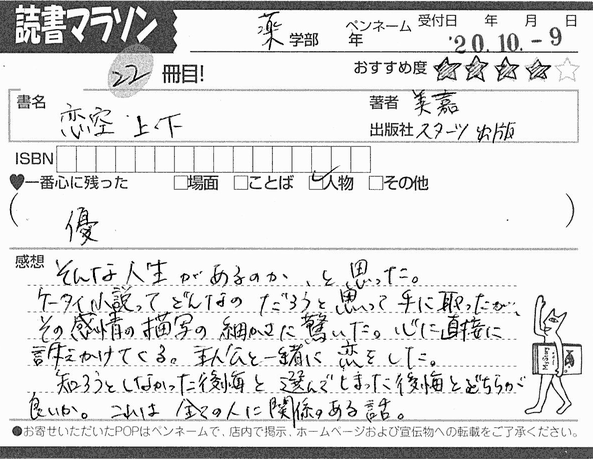 読書マラソン
薬 学部 年 ペンネーム 受付日 年 月 日
'20.10.-9
22 冊目!
おすすめ度 ★★★★☆
書名
恋空 上・下
著者 美嘉
出版社 スターツ出版
ISBN
♥一番心に残った □場面 □ことば ☑人物 □その他
(優)
感想 そんな人生があるのか、と思った。
ケータイ小説ってどんなのだろうと思って手に取ったが、
その感情の描写の細かさに驚いた。心に直接に
訴えかけてくる。主人公と一緒に恋をした。
知ろうとしなかった後悔と選んでしまった後悔とどちらが
良いか。これは全ての人に関係のある話。
●お寄せいただいたPOPはペンネームで、店内で掲示、ホームページおよび宣伝物への転載をご了承ください。